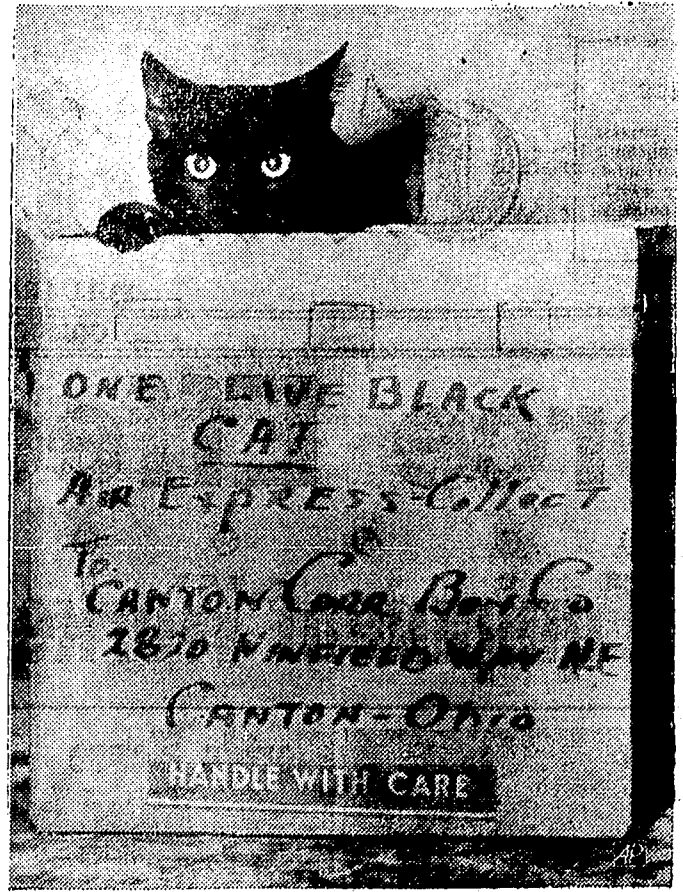 ONE LIVE BLACK
CAT
AIR EXPRESS-Collect
To
CANTON CORR BOX Co
2830 WINFIELD WAY NE
CANTON-Ohio
HANDLE WITH CARE
AP